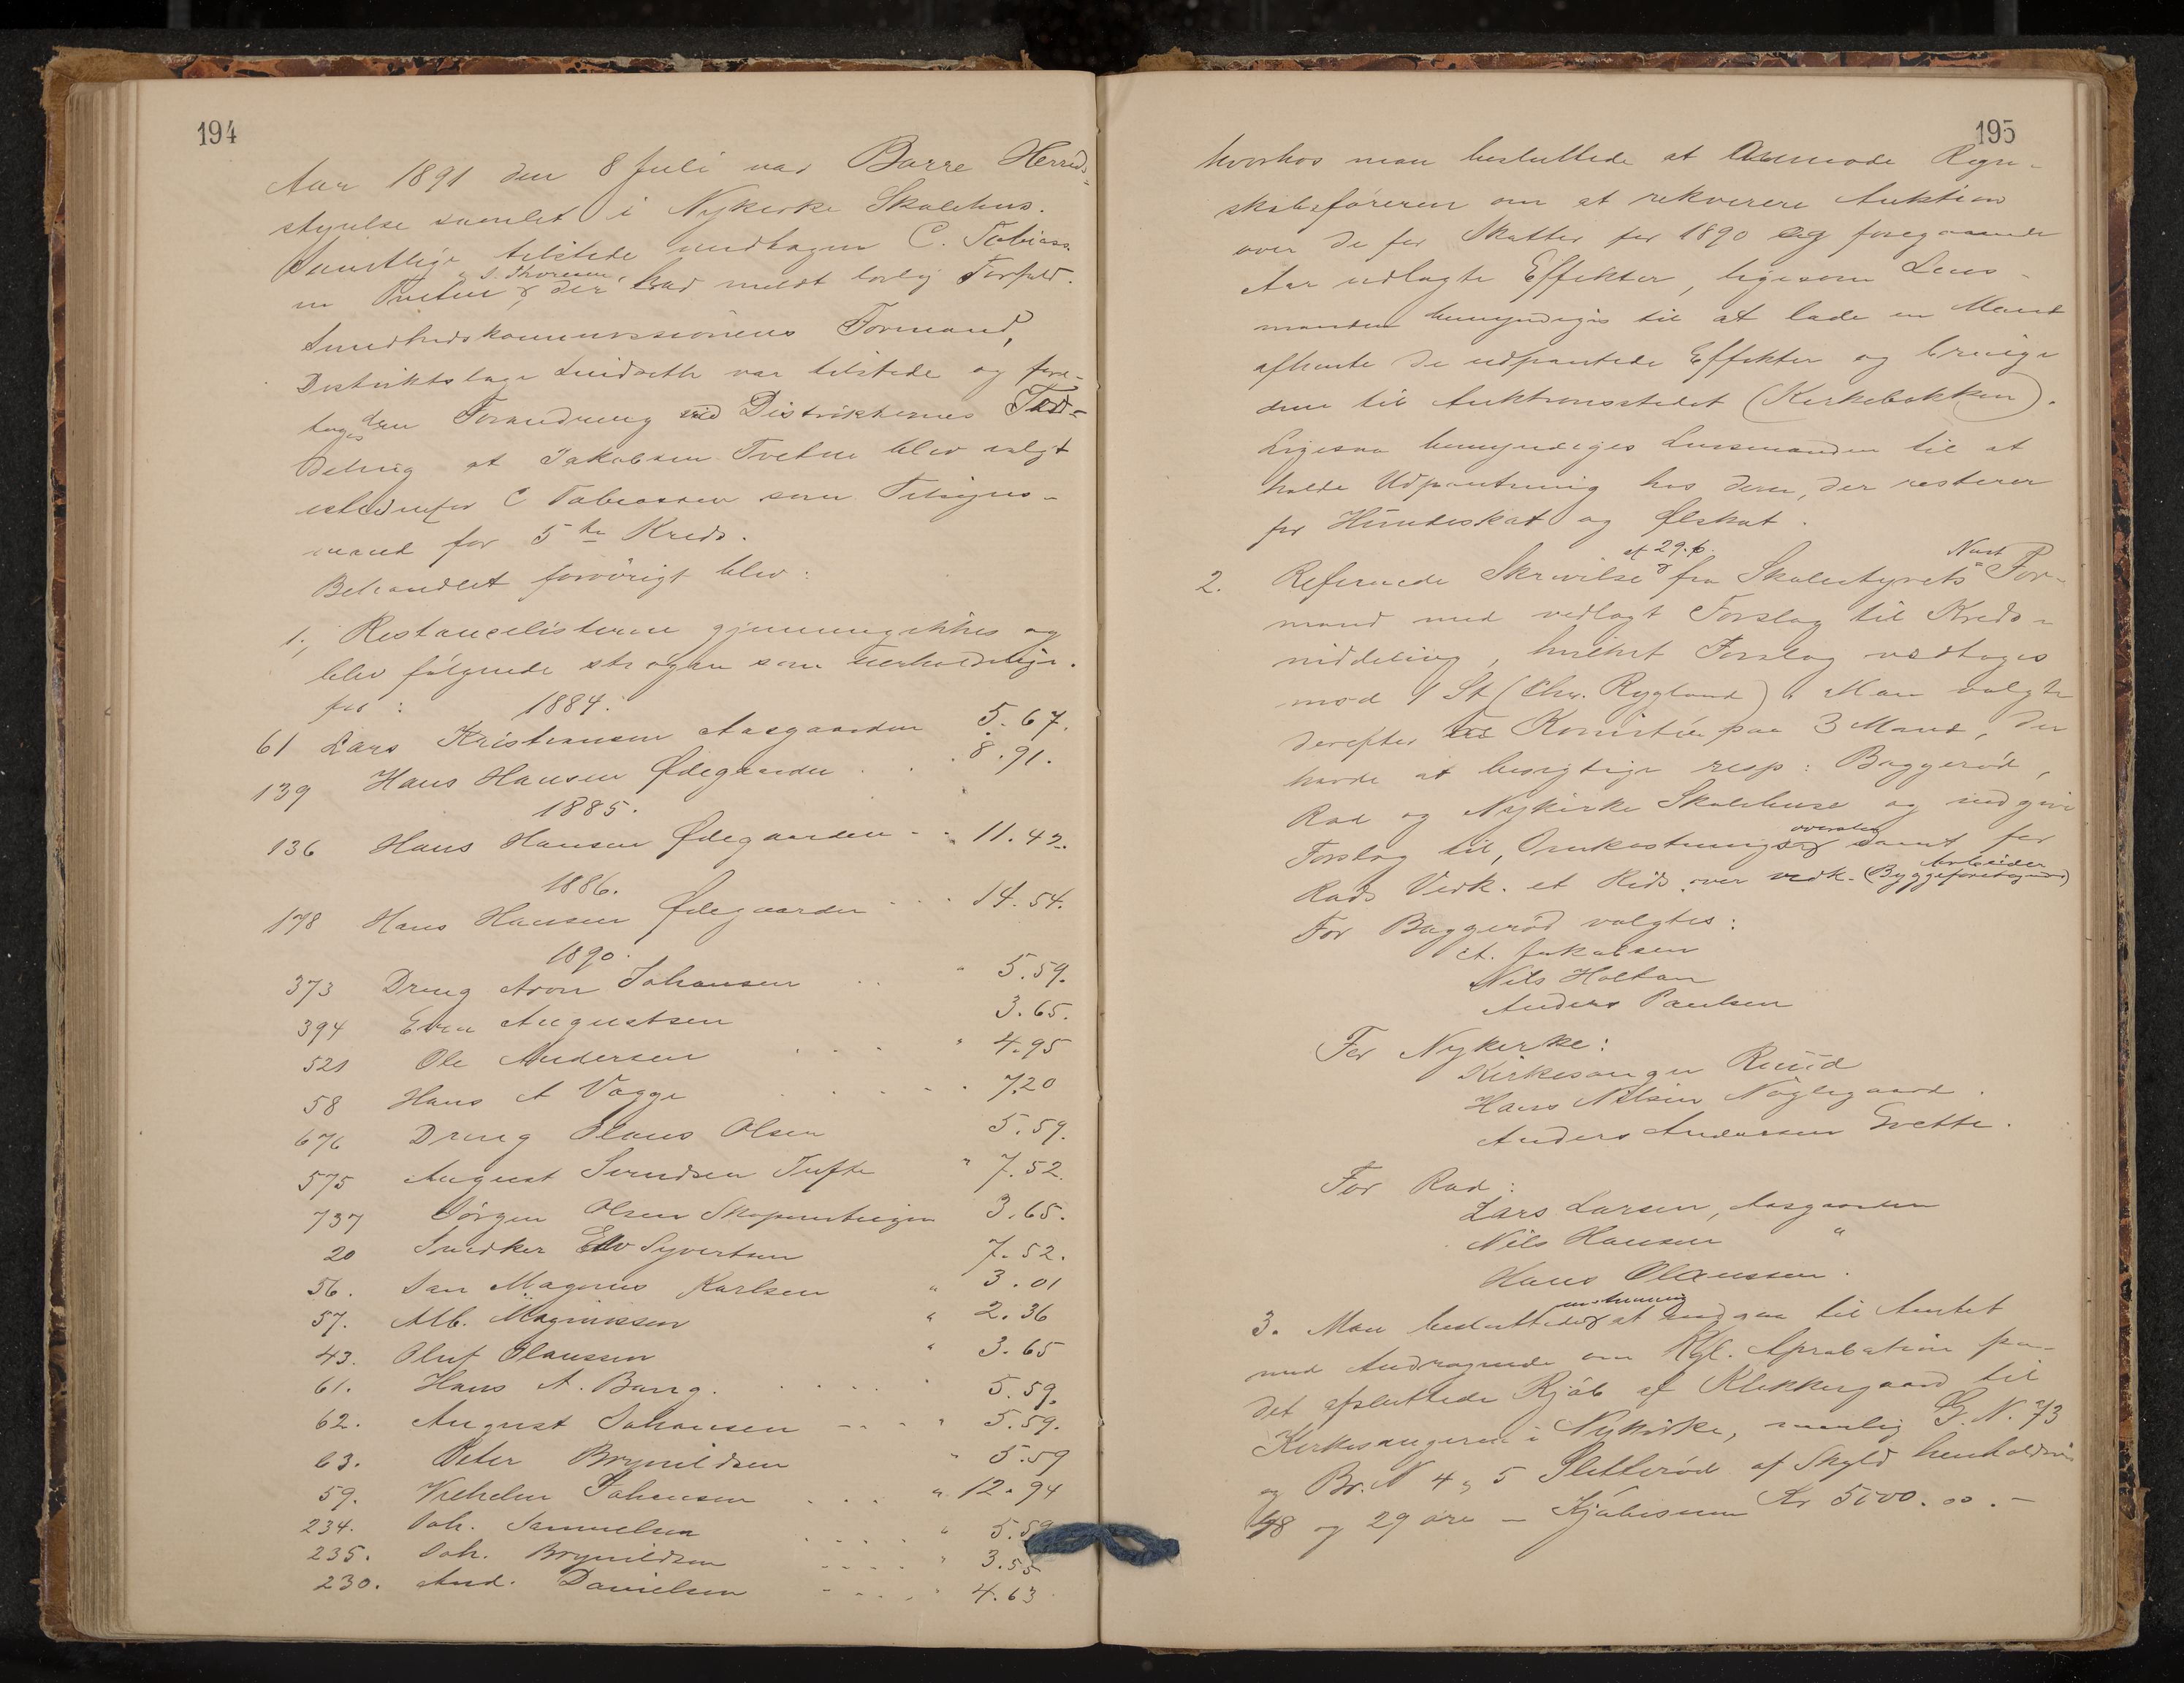 194
Aar 1891 den 8 Juli var Borre Herreds-
styrelse samlet i Nykirke Skolehus.
Samtlige tilstede undtagen C. Tobias-
og S. Thoresen,
en Tveten der havd meldt lovlig Forfald.
Sundhedskommissionens Formand,
Distriktslæge Lindseth var tilstede og fore-
toges den Forandring ved Distrikternes Ind-
deling at Jakobsen Tveten blev valgt
istedenfor C Tobiassen som Tilsyns-
mand for 5te Kreds.
Behandlet forøvrigt blev:
1., Restancelisterne gjennemgikkes og
blev følgende strøgen som uerholdelige.
for : 1884.
61 Lars Kristiansen Aasgaarden 5.67.
139 Hans Hansen Ødegaarden . . . 8.91.
1885.
136 Hans Hansen Ødegaarden - . . 11.42.
1886.
178 Hans Hansen Ødegaarden . . . 14.54.
1890.
373 Dreng Aron Johansen . . " 5.59.
394 Even Augustsen 3.65.
521 Ole Andersen . . . " 4.95
58 Hans A Vagge . . . . 7.20
676 Dreng Olaus Olsen 5.59.
575 August Svendsen Tufte " 7.52.
737 Jørgen Olsen Skopumteigen 3.65.
20 Snedker Edv Syvertsen 7.52.
56. Jan Magnus Karlsen " 3.01
57. Alb. Magnussen " 2.36
43. Oluf Olaussen " 3.65
61. Hans A. Bang. . . . . " 5.59.
62. August Johansen - - . " 5.59.
63. Peter Brynildsen " 5.59
59. Vilhelm Johansen . . . " 12.94
234. Joh. Samuelsen . . . . " 5.59
235. Joh. Brynildsen - - - - " 3.55
230. And. Danielsen - - - . " 4.63
195
hvorhos man besluttede at anmode Regn-
skabsføreren om at rekvirere Auktion
over de for Skatter for 1890 og foregaaende
Aar udlagte Effekter, ligesom Lens-
manden bemyndiges til at lade en Mand
afhente de udpantede Effekter og bringe
dem til Auktionsstedet (Kirkebakken).
Ligesaa bemyndiges Lensmanden til at
holde Udpantning hos dem, der resterer
for Hundeskat og Ølskat.
af 29.6. Næst
2. Refererede Skrivelse fra Skolestyrets For-
mand med vedlagt Forslag til Kreds-
inddeling, hvilket Forslag vedtoges
mod 1 St (Chr. Rygland). Man valgte
derefter Komitéer paa 3 Mand, der
havde at besigtige resp: Baggerød,
Rød og Nykirke Skolehuse og indgive
overslag
Forslag til, Omkostnings samt for
Arbeider
Røds Vedk. et Rids over vedk. (Byggeforetagende)
For Baggerød valgtes:
A. Jakobsen
Nils Holtan
Anders Paulsen
For Nykirke:
Kirkesanger Ruud
Hans Nilsen Nøglegaard.
Anders Andersen Grette.
For Rød:
Lars Larsen, Aasgaarden
Nils Hansen "
Hans Olaussen.
enstemmig
3. Man besluttede at indgaa til Amtet
med Andragende om Kgl. Aprobation paa
det afsluttede Kjøb af Klokkergaard til
Kirkesangeren i Nykirke, nemlig G. N. 73
og Br. N 4 & 5 Sletterød af Skyld henholdsvis
48 og 29 øre - Kjøbesum Kr 5000.00.-